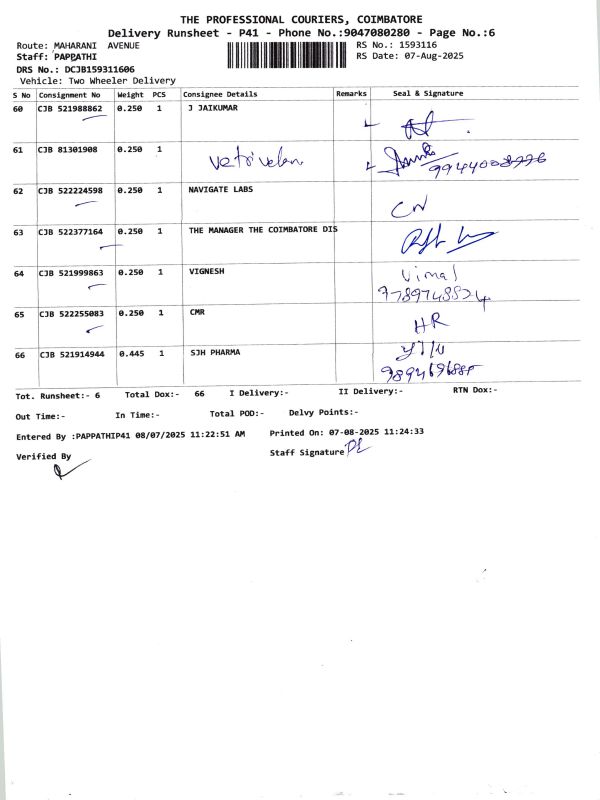 THE PROFESSIONAL COURIERS, COIMBATORE
Delivery Runsheet - P41 - Phone No.:9047080280 - Page No.:6
Route: MAHARANI AVENUE
Staff: PAPPATHI
DRS No.: DCJB159311606
Vehicle: Two Wheeler Delivery
RS No.: 1593116
RS Date: 07-Aug-2025
S No Consignment No Weight PCS Consignee Details Remarks Seal & Signature
60 CJB 521988862 0.250 1 J JAIKUMAR
61 CJB 81301908 0.250 1 Vetrivelan
62 CJB 522224598 0.250 1 NAVIGATE LABS CN
63 CJB 522377164 0.250 1 THE MANAGER THE COIMBATORE DIS
64 CJB 521999863 0.250 1 VIGNESH Vimal
65 CJB 522255083 0.250 1 CMR HR
66 CJB 521914944 0.445 1 SJH PHARMA
Tot. Runsheet:- 6 Total Dox:- 66 I Delivery:- II Delivery:- RTN Dox:-
Out Time:- In Time:- Total POD:- Delvy Points:-
Entered By :PAPPATHIP41 08/07/2025 11:22:51 AM Printed On: 07-08-2025 11:24:33
Verified By Staff Signature